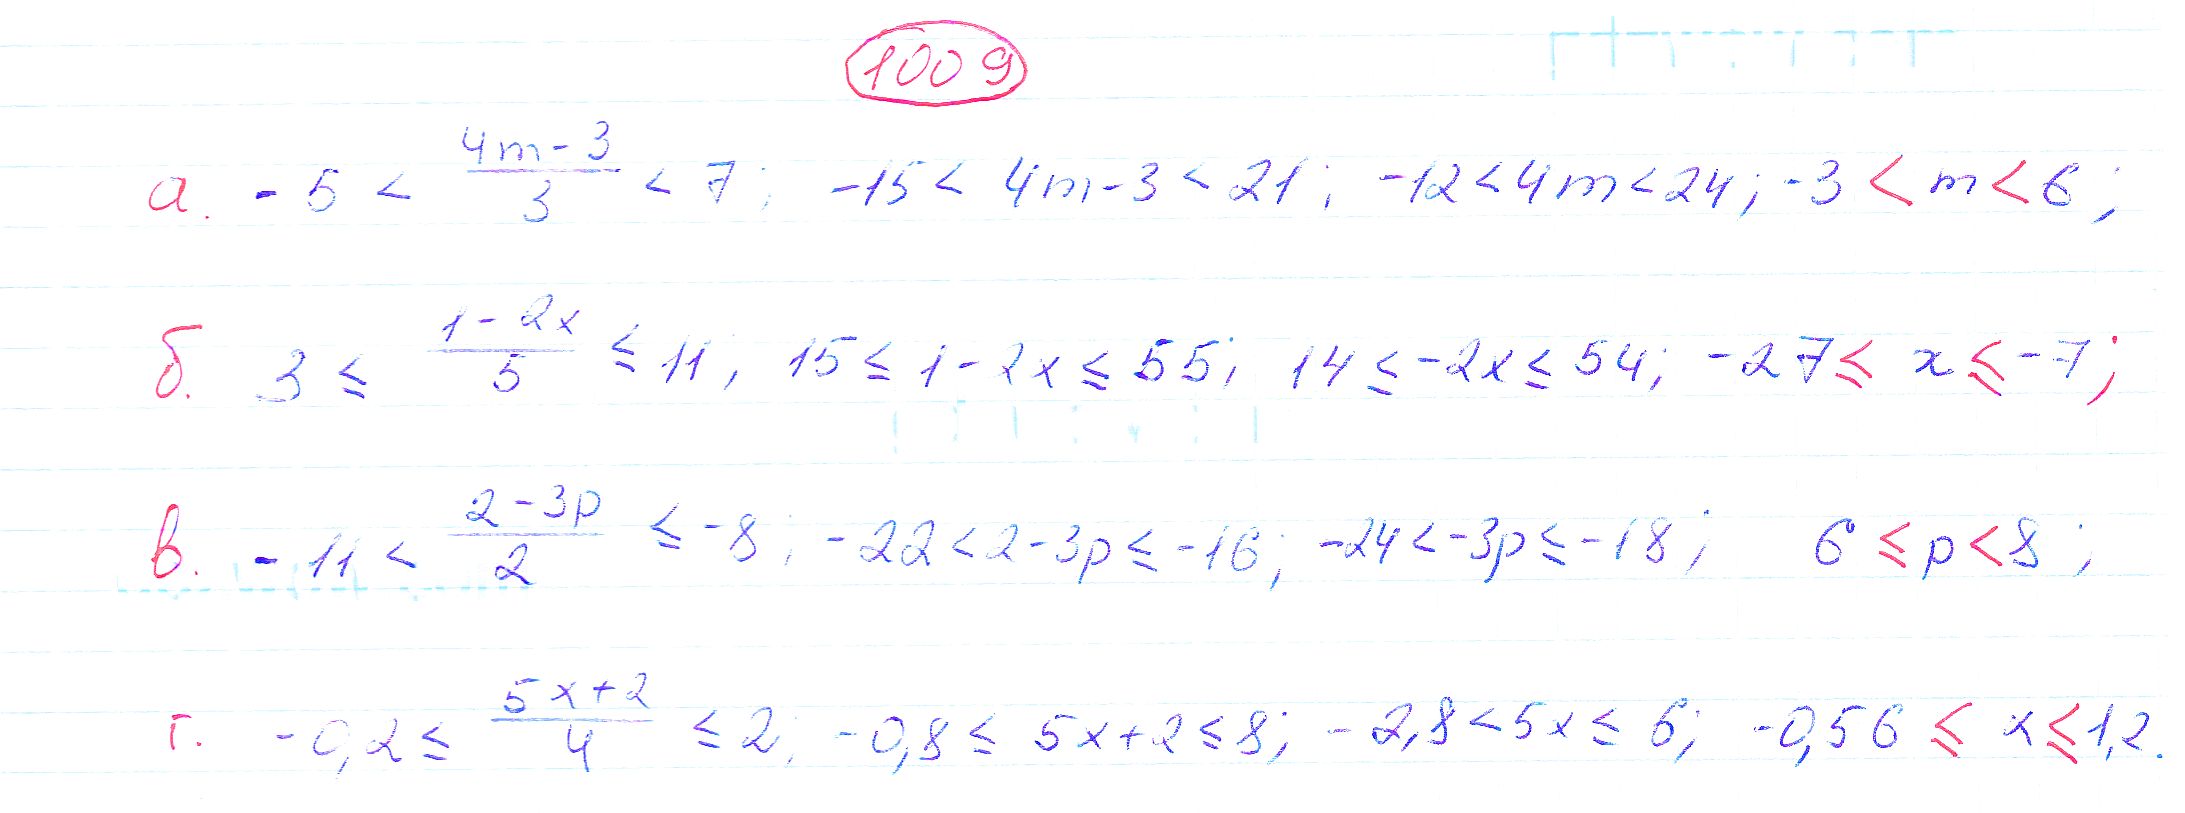 1009
а. -5 < (4m-3)/3 < 7; -15 < 4m-3 < 21; -12<4m<24; -3 < m < 6;
б. 3 ≤ (1-2x)/5 ≤ 11; 15 ≤ 1-2x ≤ 55; 14 ≤ -2x ≤ 54; -27 ≤ x ≤ -7;
в. -11 < (2-3p)/2 ≤ -8; -22 < 2-3p ≤ -16; -24 < -3p ≤ -18; 6 ≤ p < 8;
г. -0,2 ≤ (5x+2)/4 ≤ 2; -0,8 ≤ 5x+2 ≤ 8; -2,8 < 5x ≤ 6; -0,56 ≤ x ≤ 1,2.